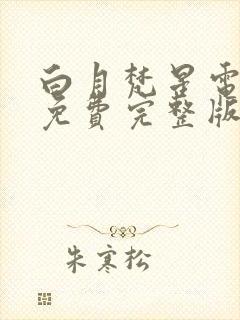 白月梵星電
免費完整版
朱寒松